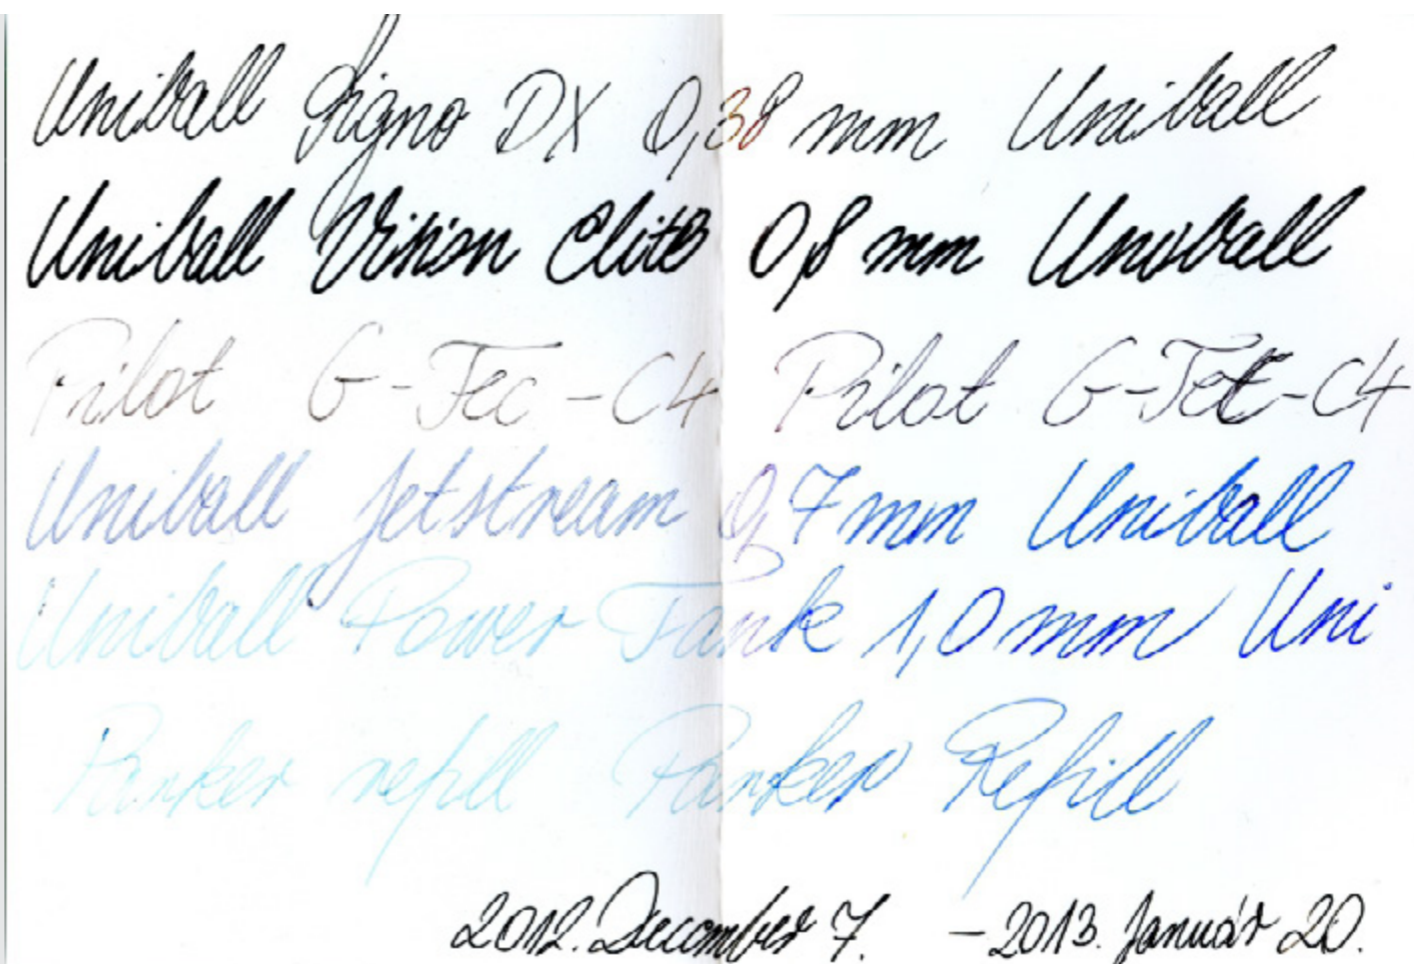 Uniball Signo DX 0,38 mm Uniball
Uniball Vision Elite 0,8 mm Uniball
Pilot G-Tec-C4 Pilot G-Tec-C4
Uniball Jetstream 0,7 mm Uniball
Uniball Power Tank 1,0 mm Uni
Parker refill Parker Refill
2012. December 7. - 2013. Január 20.